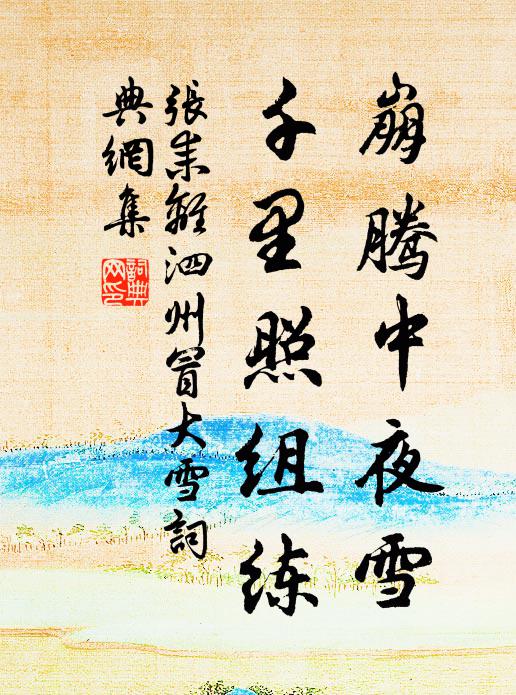 崩腾中夜雪
千里照组练
張耒離泗州冒大雪詞
典網集
詞典
网印